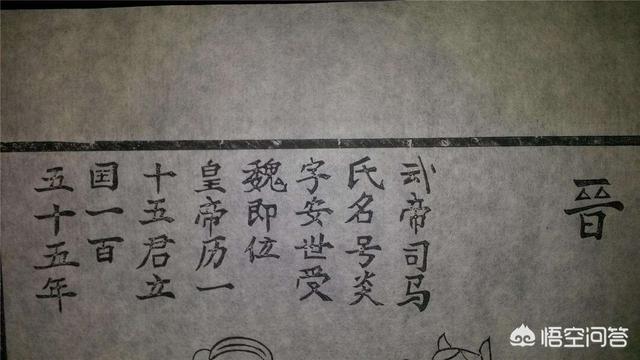 晉
武帝司马
氏名号炎
字安世受
魏即位
皇帝历一
十五君立
国一百
五十五年
悟空问答